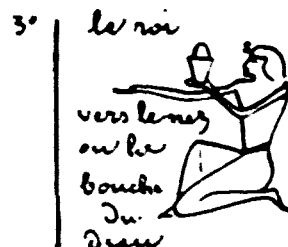 3° le roi
vers le nez
ou la
bouche
du
dieu